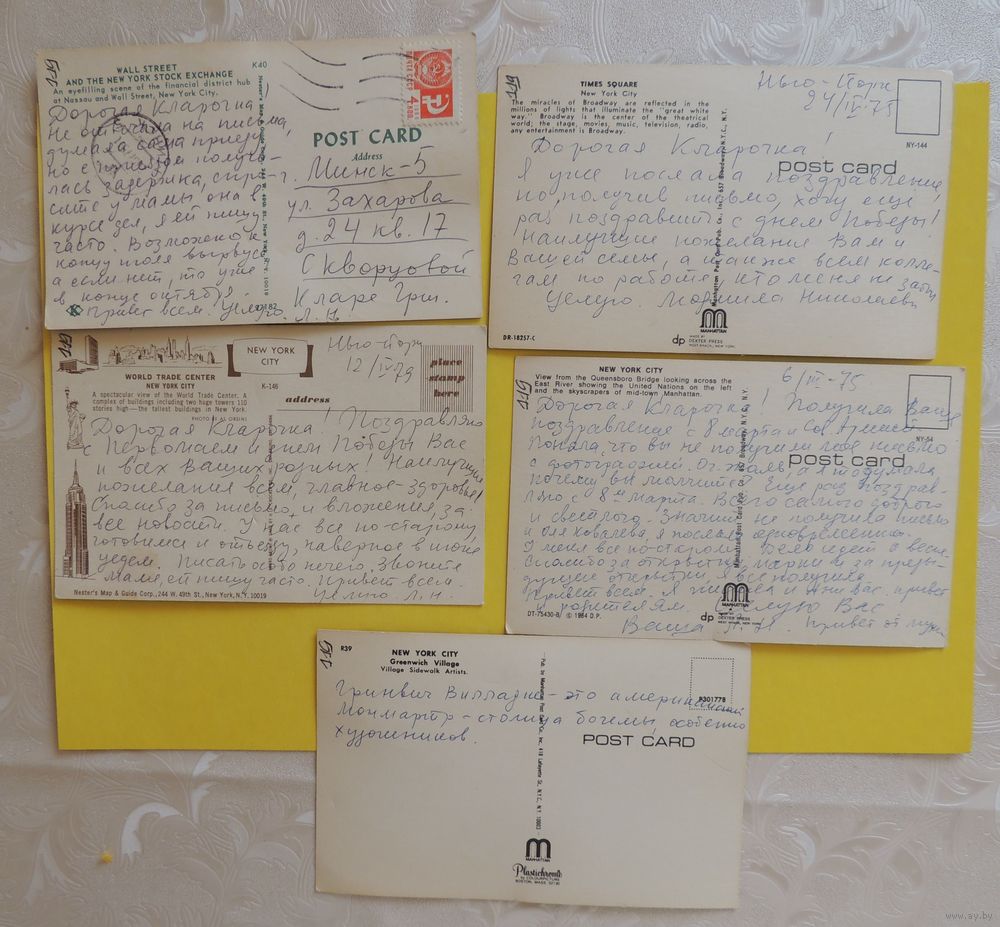 WALL STREET
AND THE NEW YORK STOCK EXCHANGE
K40
An eyefilling scene of the financial district hub
at Nassau and Wall Street, New York City.
Дорогая Кларочка!
Не отвечала на письма,
думала сама приеду,
но с приездом получи-
лась задержка, спро-
сите у мамы, она в
курсе дел, я ей пишу
часто. Возможно к
концу июля вырвусь,
а если нет, то уже
в конце октября
Привет всем. Целую.
Л. Н.
POST CARD
Address
Минск-5
ул. Захарова
д. 24 кв. 17
Скворцовой
Кларе Григ.
TIMES SQUARE
New York City
The miracles of Broadway are reflected in the
millions of lights that illuminate the "great white
way." Broadway is the center of the theatrical
world; the stage, movies, music, television, radio,
any entertainment is Broadway.
Нью-Йорк
24/IV-75
NY-144
post card
Дорогая Кларочка!
Я уже послала поздравление
но, получив письмо, хочу еще
раз поздравить с днем Победы!
Наилучшие пожелания Вам и
Вашей семье, а также всем колле-
гам по работе, кто меня не забыл
Целую. Людмила Николаевн
MANHATTAN
DR-18257-C
dp
DEXTER PRESS
WEST NYACK, NEW YORK
WORLD TRADE CENTER
NEW YORK CITY
A spectacular view of the World Trade Center. A
complex of buildings including two huge towers 110
stories high—the tallest buildings in New York.
NEW YORK
CITY
K-146
address
place
stamp
here
Нью-Йорк
12/IV-79
Дорогая Кларочка! Поздравляю
с Первомаем и днем Победы Вас
и всех Ваших родных! Наилучшие
пожелания всем, главное - здоровья!
Спасибо за письмо, и вложения, за
все новости. У нас все по-старому,
готовимся к отъезду, наверное в июне
уедем. Писать особо нечего, звоните
маме, ей пишу часто. Привет всем.
Целую Л. Н.
Nester's Map & Guide Corp., 244 W. 49th St., New York, N.Y. 10019
NEW YORK CITY
View from the Queensboro Bridge looking across the
East River showing the United Nations on the left
and the skyscrapers of mid-town Manhattan.
6/III-75
NY-54
post card
Дорогая Кларочка! Получила Ваше
поздравление с 8 марта и Сов. Армией.
Поняла, что вы не получили мое письмо
с фотографией. Оч. жаль, а я то думала
почему вы молчите? Еще раз поздрав-
ляю с 8ым марта. Всего самого доброго
и светлого. Значит не получила письмо
и Оля Ковалева, я послала одновременно.
У меня все по-старому. Дело идет к весне.
Спасибо за открытки, марки и за преды-
дущие открытки, я все получила.
Привет всем.
и родителям. Целую Вас
Ваша Л. Н. Привет от мужа
MANHATTAN
DT-75430-B
© 1964 D.P.
dp
R39
NEW YORK CITY
Greenwich Village
Village Sidewalk Artists.
P301778
Гринвич Вилладж - это американский
Монмартр - столица богемы, особенно
художников.
POST CARD
MANHATTAN
Plastichrome
by COLOURPICTURE
BOSTON, MASS. 02130
www.ay.by